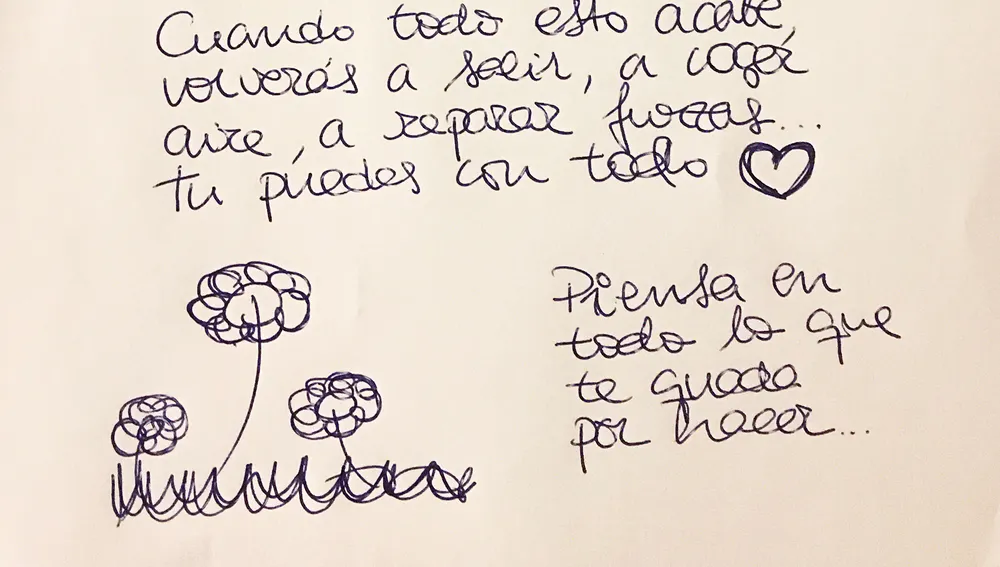 Cuando todo esto acabe,
volverás a salir, a coger
aire, a reparar fuerzas...
tu puedes con todo
Piensa en
todo lo que
te queda
por hacer...